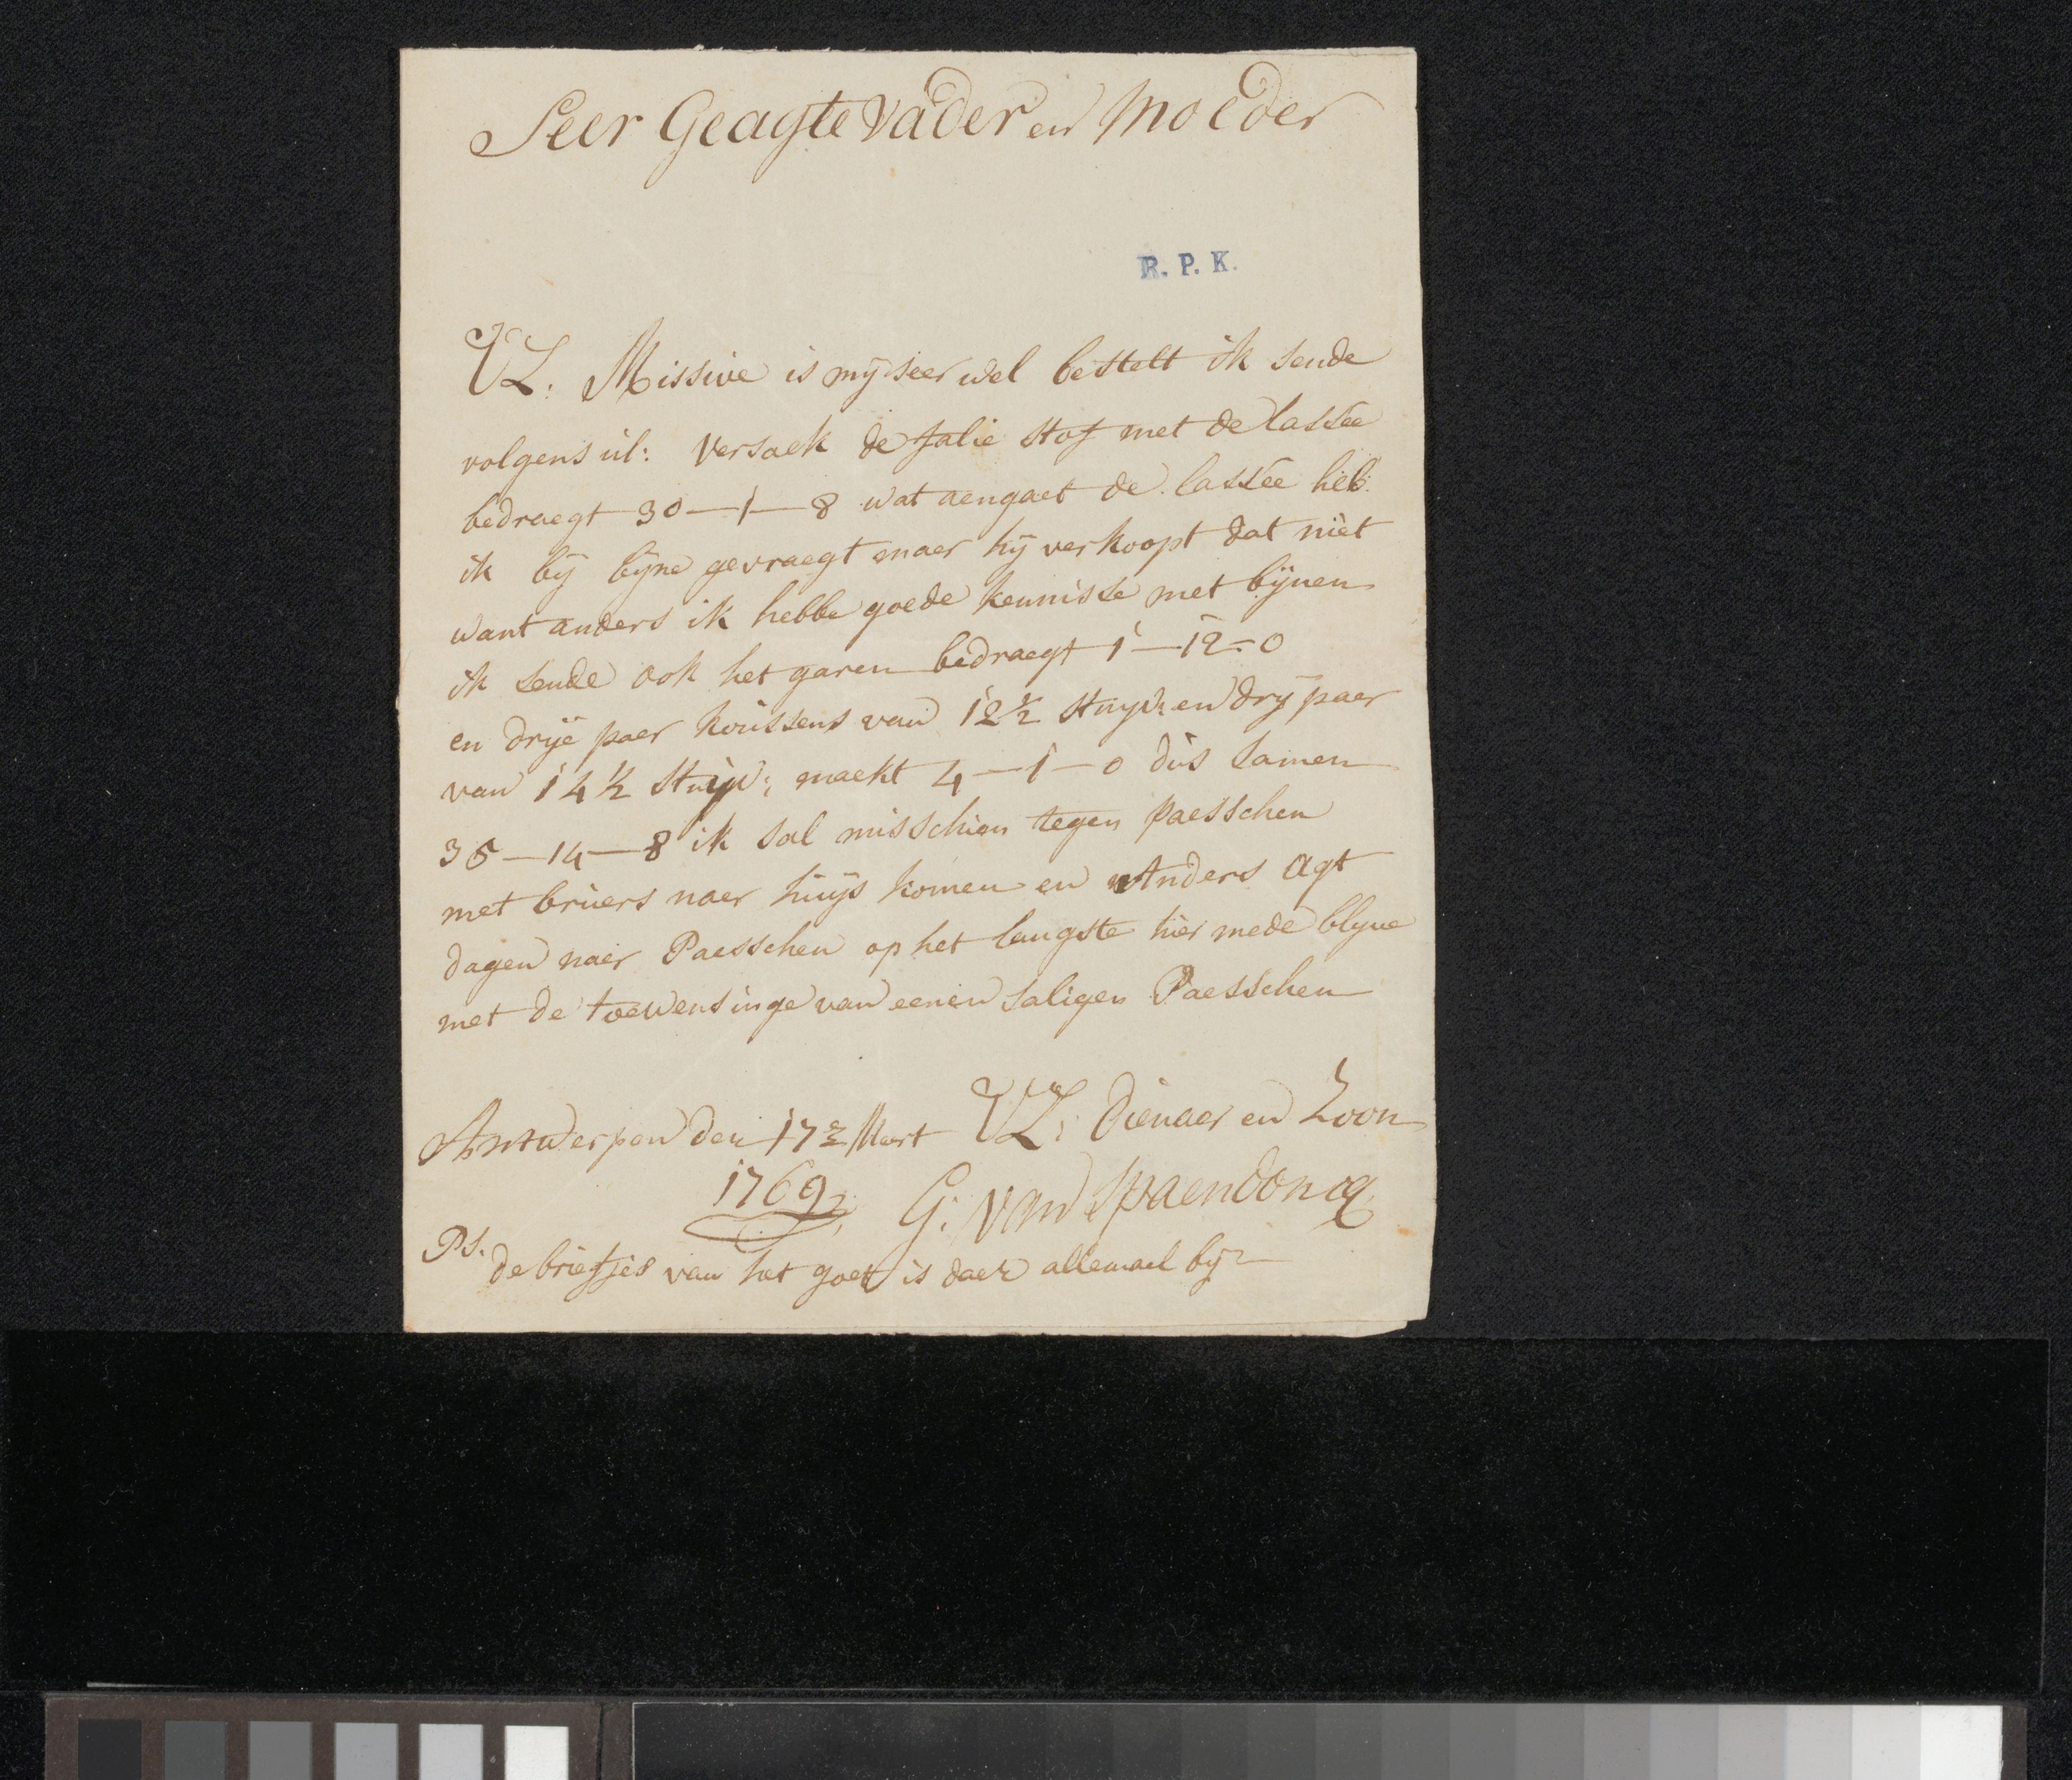 Seer Geagte vader en Moeder
R. P. K.
UL: Missive is mij seer wel bestelt ik sende
volgens ul: versoek de falie stof met de lassée
bedraegt 30-1-8 wat aengaet de lassée heb
ik bij bijne gevraegt maer hij verkoopt dat niet
want anders ik hebbe goede kennisse met bijnen
ik sende ook het garen bedraegt 1-12-0
en drije paer koussens van 12½ stuyv: en drij paer
van 14½ stuyv: maekt 4-1-0 dus samen
35-14-8 ik sal misschien tegen paesschen
met bruers naer huijs komen en Anders agt
dagen naer Paesschen op het langste hier mede blyve
met de toewensinge van eenen saligen Paesschen
Antwerpen den 17 Mart UL: Dienaer en Zoon
1769 G: van Spaendoncq
Ps. de briefjes van het goet is daer allemael bij